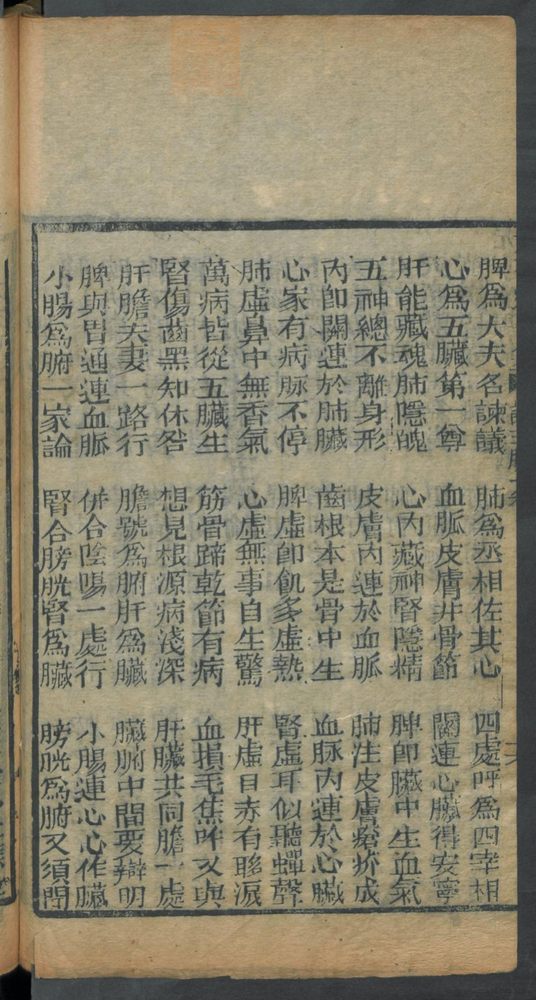 脾為大夫名諫議 肺為丞相佐其心 四處呼為四宰相
心為五臟第一尊 血脈皮膚并骨節 關連心臟得安寧
肝能藏魂肺隱魄 心內藏神腎隱精 脾即臟中生血氣
五神總不離身形 皮膚內連於血脈 肺注皮膚瘡疥成
內即關連於肺臟 齒根本是骨中生 血脉內連於心臟
心家有病脉不停 脾虛即飢多虛熱 腎虛耳似聽蟬聲
肺虛鼻中無香氣 心虛無事自生驚 肝虛目赤有眵淚
萬病皆從五臟生 筋骨蹄乾節有病 血損毛焦吽又與
腎傷齒黑知休咎 想見根源病淺深 肝臟共同膽一處
肝膽夫妻一路行 膽號為腑肝為臟 臟腑中間要辯明
脾與胃通連血脈 併合陰陽一處行 小腸連心心作臟
小腸為腑一家論 腎合膀胱腎為臟 膀胱為腑又須開